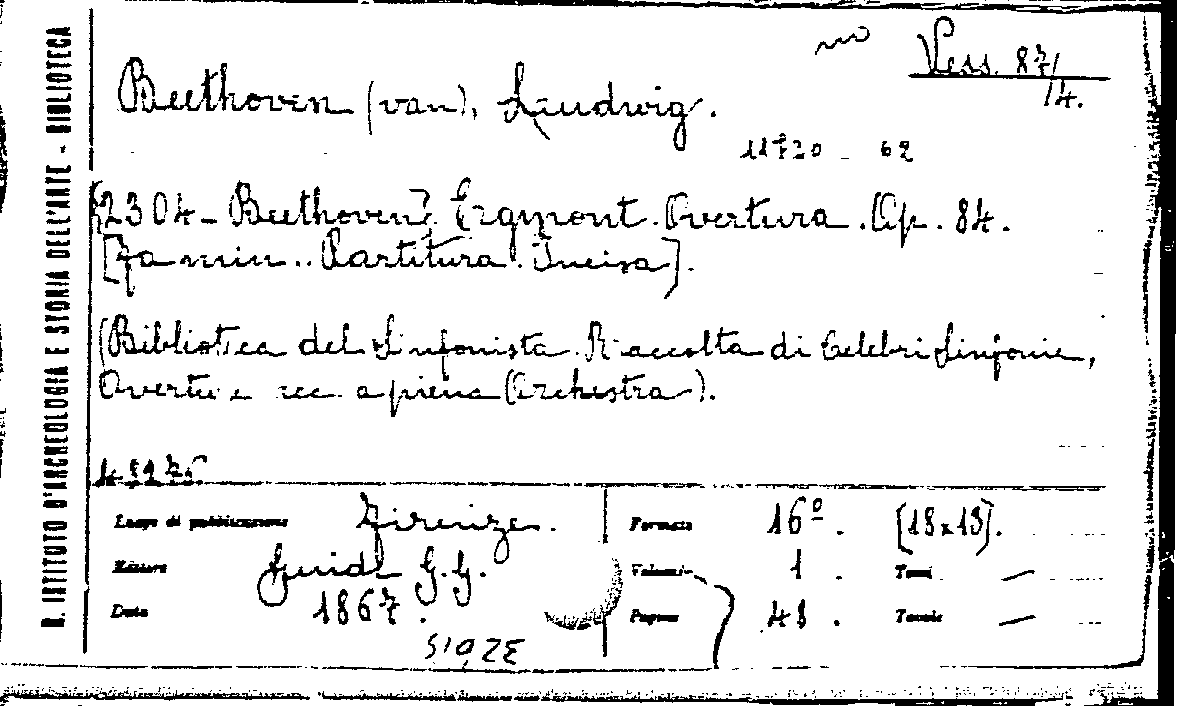 R. ISTITUTO D'ARCHEOLOGIA E STORIA DELL'ARTE - BIBLIOTECA
no Vess. 87/14.
Beethoven (van), Ludwig.
11720 - 62
[2304 - Beethoven]. Egmont. Overtura. Op. 84.
[Fa min.. Partitura. Incisa].
(Biblioteca del Sinfonista. Raccolta di Celebri Sinfonie,
Overture ecc. a piena Orchestra).
Luogo di pubblicazione Firenze. Formato 16º. [18x13].
Editore Guidi G.G. Volumi 1. Tomi —
Data 1867. Pagine 48. Tavole —